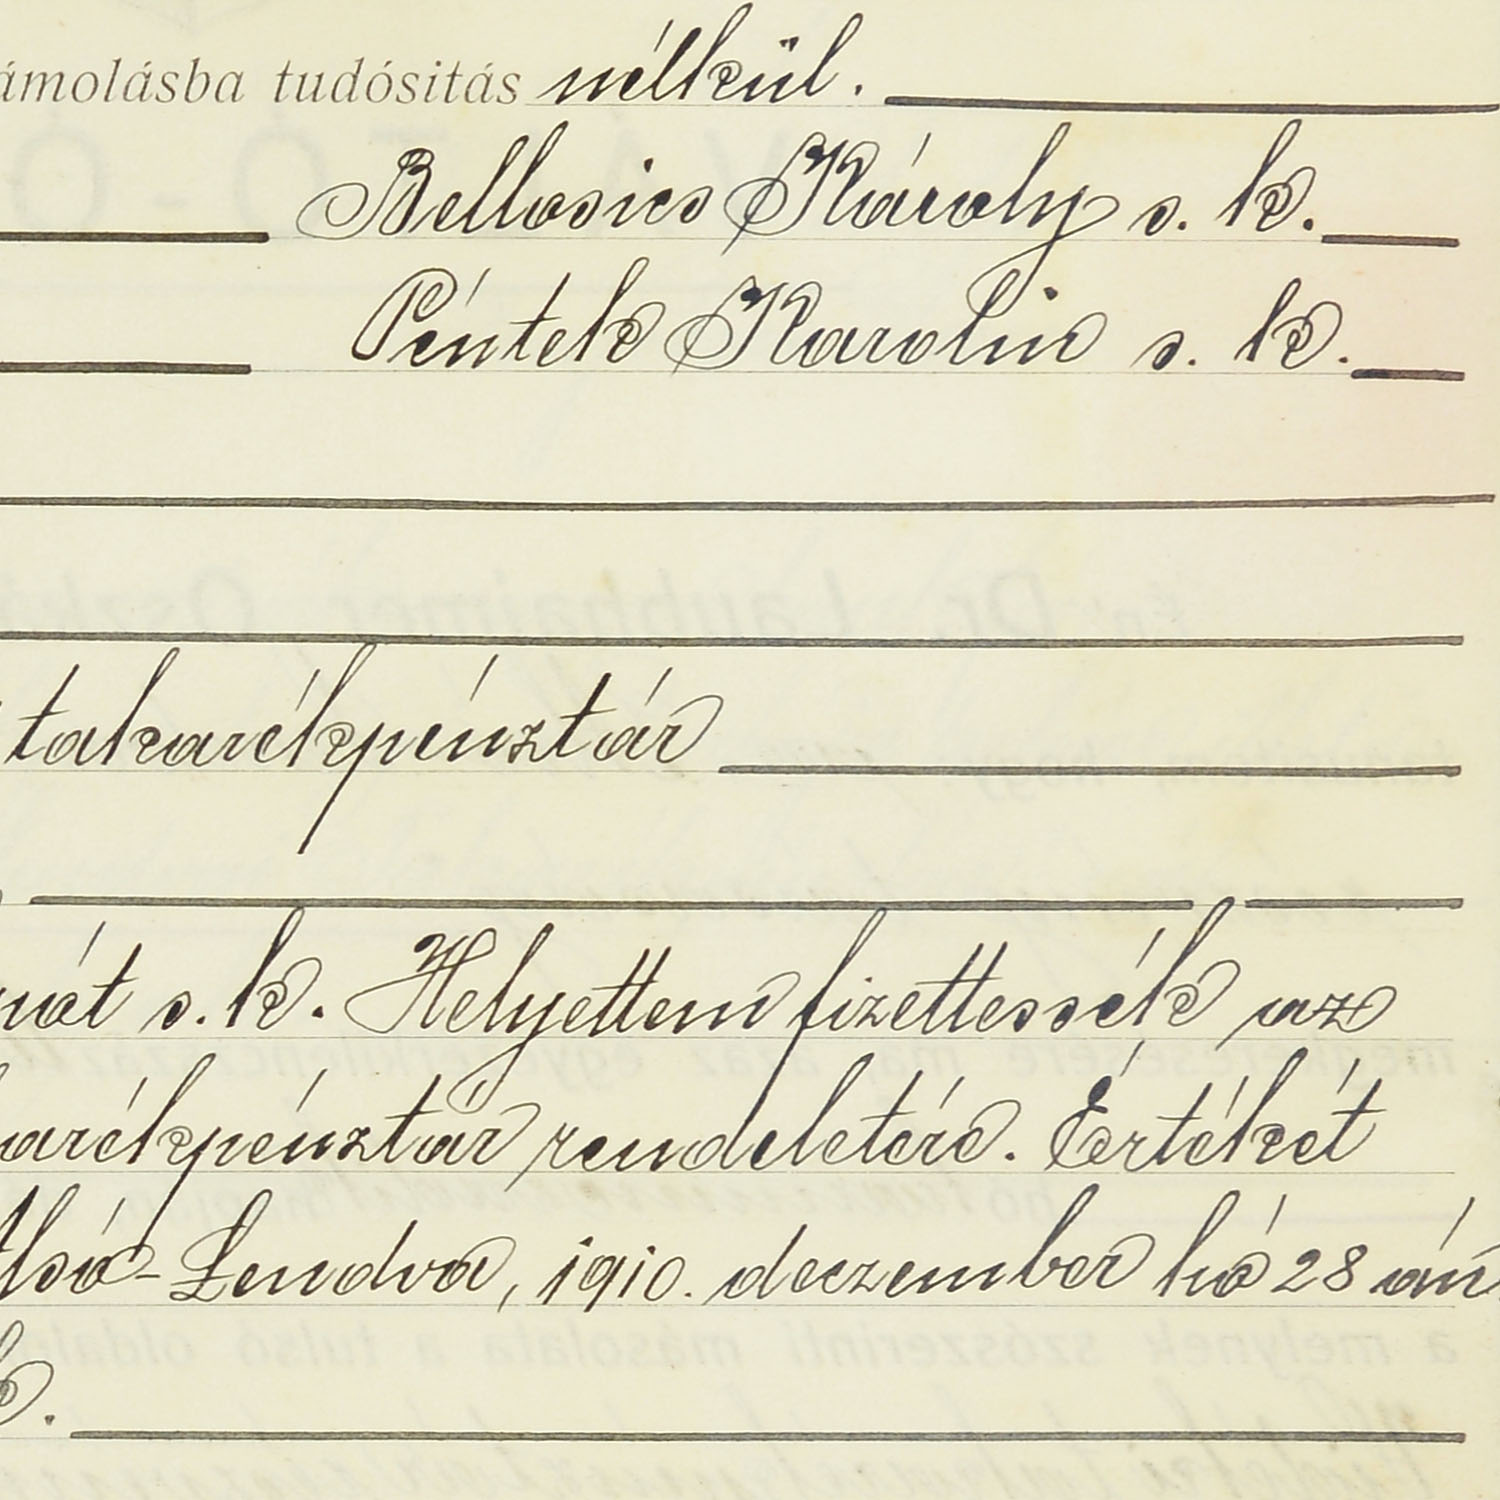 ámolásba tudósitás nélkül.
Bellosics Károly s. k.
Péntek Karolin s. k.
takarékpénztár
nát s. k. Helyettem fizettessék az
arékpénztár rendeletére. Értékét
Alsó-Lendva, 1910. deczember hó 28 án
k.